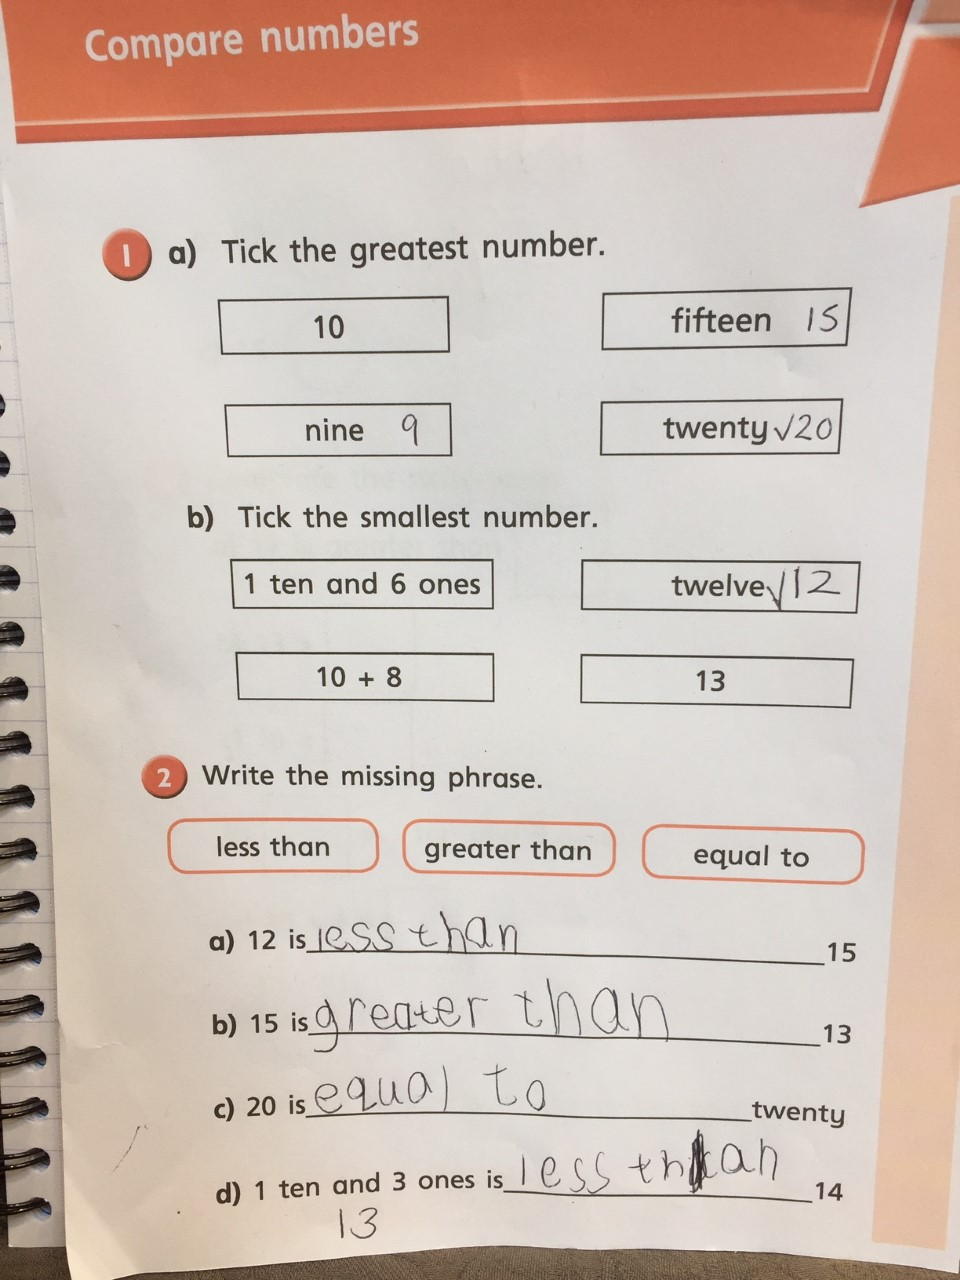 Compare numbers
1 a) Tick the greatest number.
10 fifteen 15
nine 9 twenty √20
b) Tick the smallest number.
1 ten and 6 ones twelve √12
10 + 8 13
2 Write the missing phrase.
less than greater than equal to
a) 12 is less than 15
b) 15 is greater than 13
c) 20 is equal to twenty
d) 1 ten and 3 ones is less than 14
13